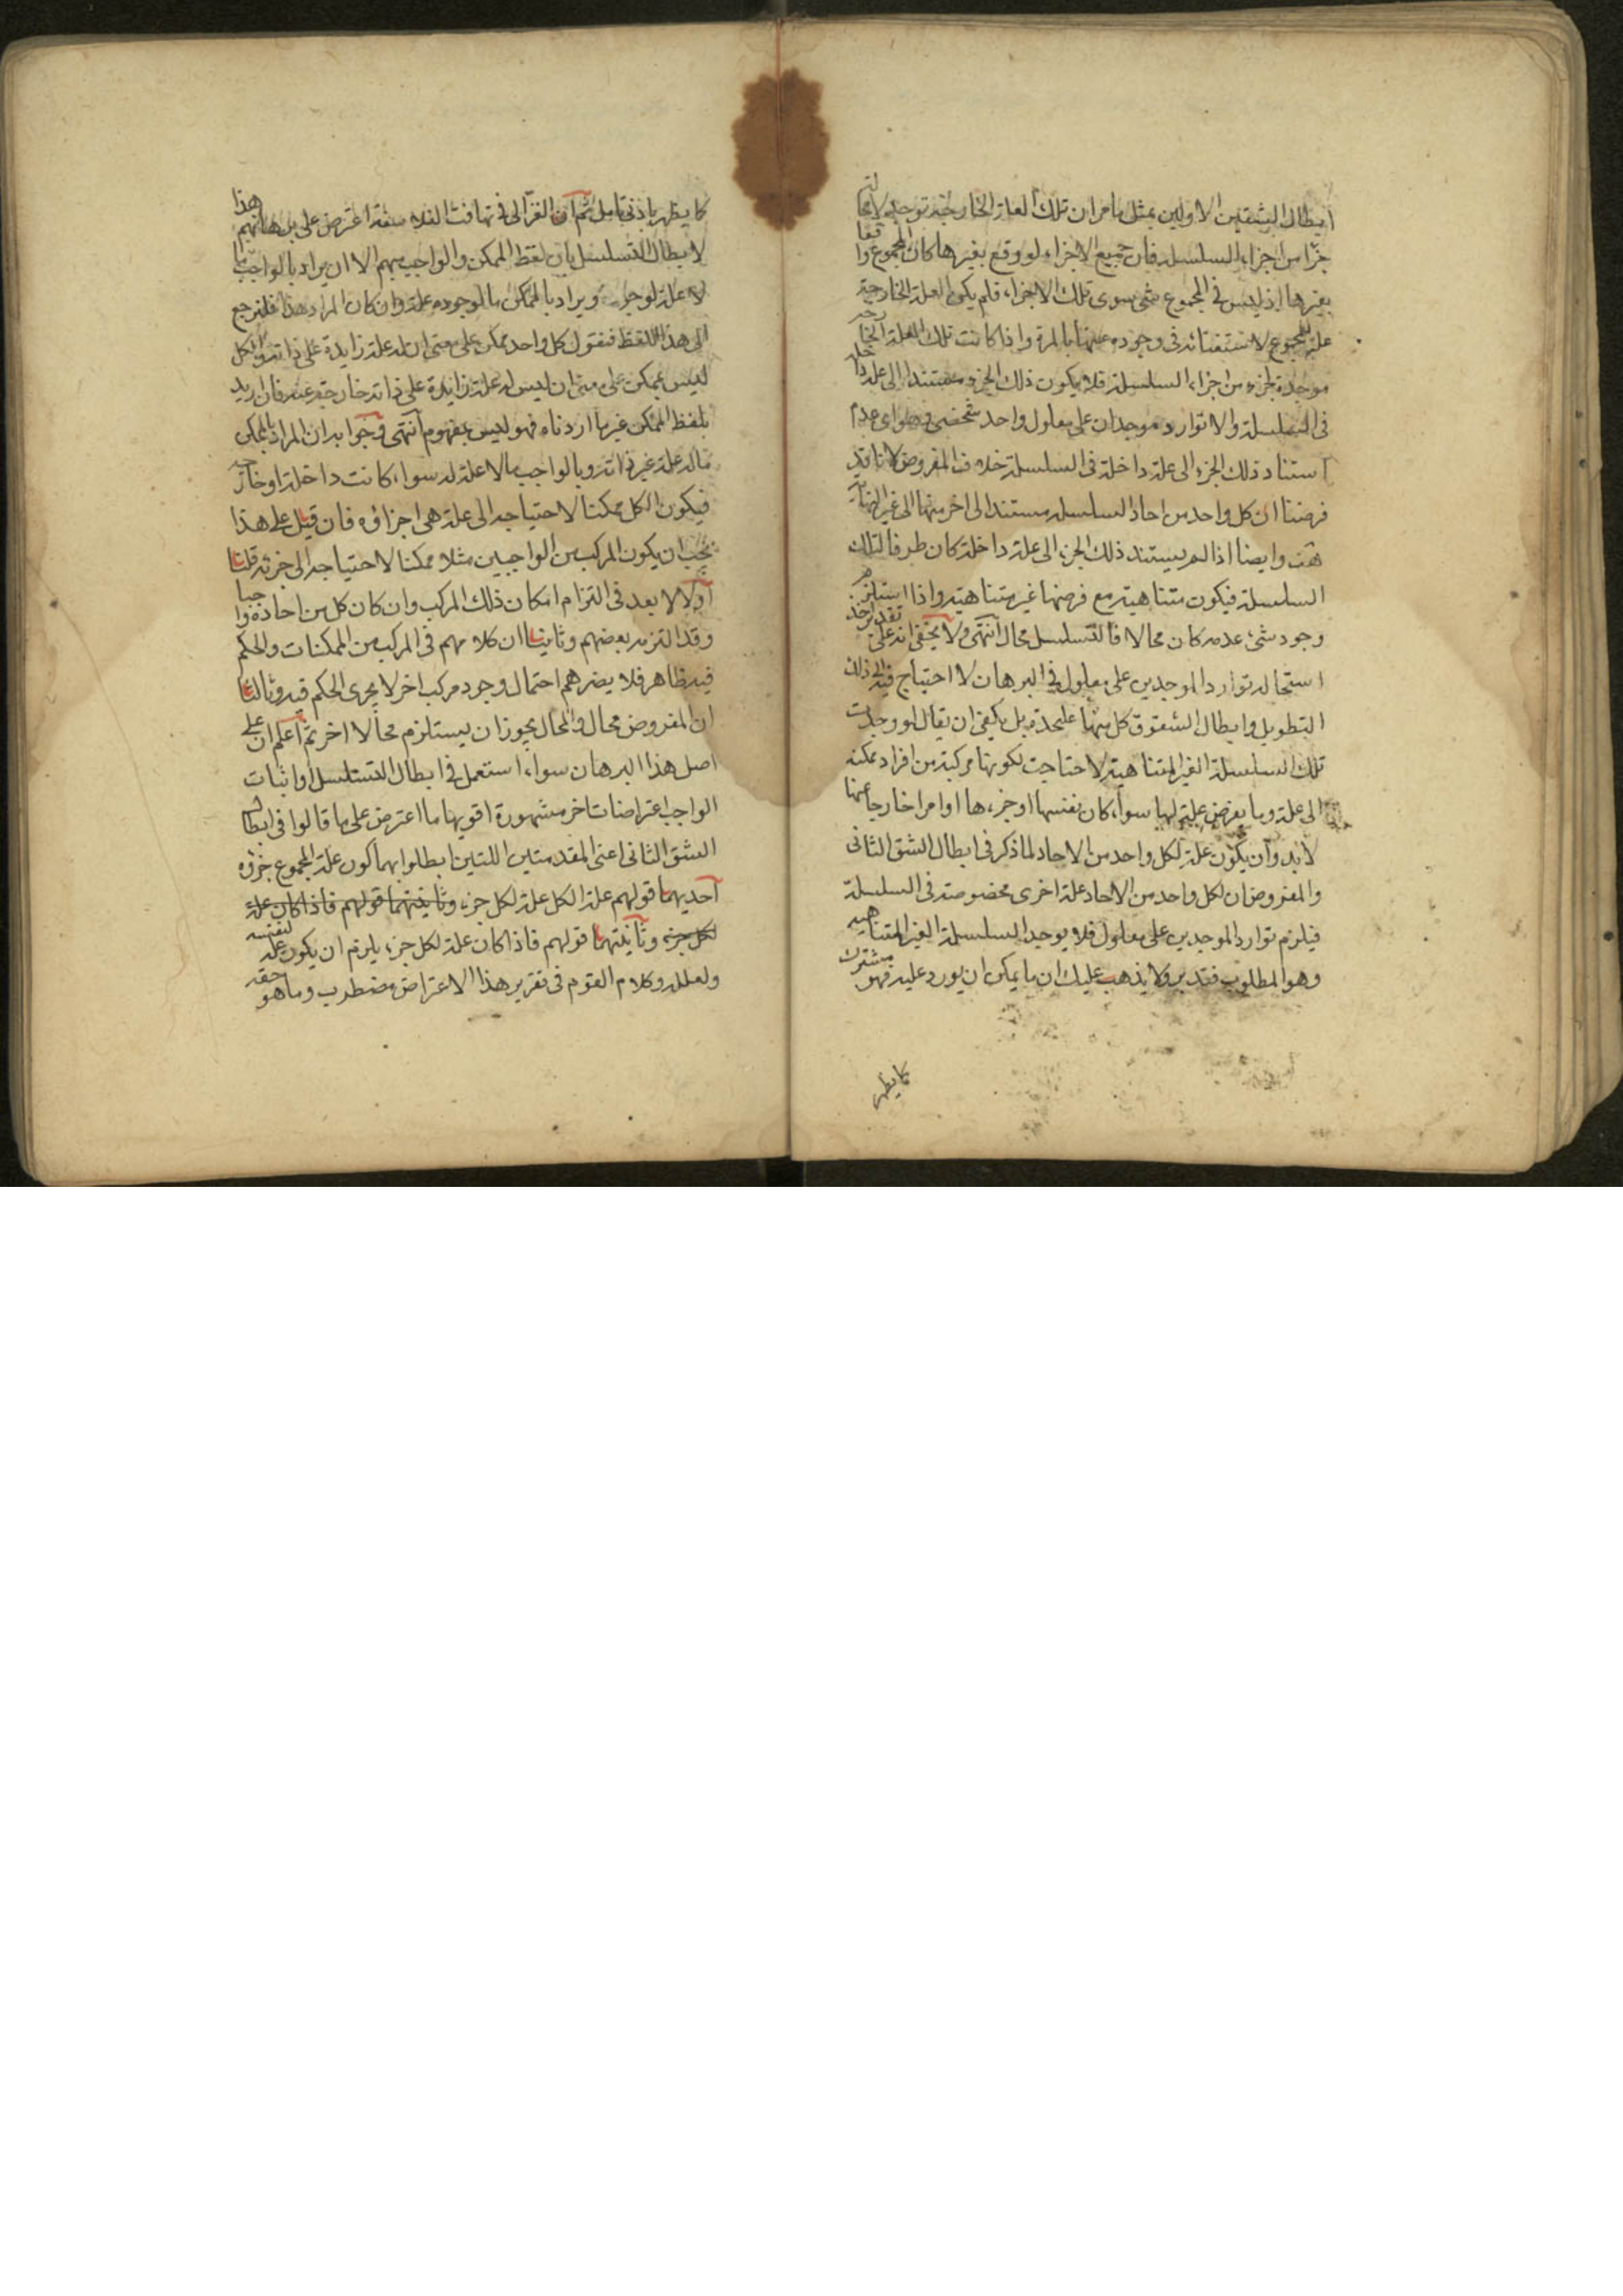 ابطال الشقين الاولين بمثل ما مر ان تلك العلة الخارجية توجد لا محالة
جزأ من اجزاء السلسلة فان جميع الاجزاء لو وقع بغيرها كان المجموع واقعا
بغيرها اذ ليس في المجموع شئ سوى تلك الاجزاء فلم يكن العلة الخارجية
علة للمجموع لاستغنائه في وجوده عنها بالمرة واذا كانت تلك العلة الخارجة
موجدة لجزء من اجزاء السلسلة فلا يكون ذلك الجزء مستندا الى علة داخلة
في السلسلة والا توارد موجدان على معلول واحد شخصي وهو اى عدم
استناد ذلك الجزء الى علة داخلة في السلسلة خلاف المفروض لانا قد
فرضنا ان كل واحد من احاد السلسلة مستندا الى اخر منها الى غير النهاية
هف وايضا اذا لم يستند ذلك الجزء الى علة داخلة كان طرفا لتلك
السلسلة فيكون متناهية مع فرضها غير متناهية واذا استلزم
وجود شئ عدمه كان محالا فالتسلسل محال انتهى ولا يخفى انه على تقدير اخذ
استحالة توارد الموجدين على معلول في البرهان لا احتياج فيه الى ذلك
التطويل وابطال الشقوق كل منها عليحدة بل يكفى ان يقال لو وجدت
تلك السلسلة الغير المتناهية لاحتاجت لكونها مركبة من افراد ممكنة
الى علة وما يفرض علة لها سواء كان نفسها او جزءها او امرا خارجا عنها
لابد وان يكون علة لكل واحد من الاحاد لما ذكر في ابطال الشق الثاني
والمفروض ان لكل واحد من الاحاد علة اخرى مخصوصة في السلسلة
فيلزم توارد الموجدين على معلول فلا يوجد السلسلة الغير المتناهية
وهو المطلوب فتدبر ولا يذهب عليك ان ما يمكن ان يورد عليه فهو مشترك
كما يظهر
كما يظهر بادنى تامل ثم ان الغزالى في تهافت الفلاسفة اعترض على برهانهم هذا
لابطال التسلسل بان لفظ الممكن والواجب مبهم الا ان يراد بالواجب ما
لا علة لوجوده ويراد بالممكن ما لوجوده علة وان كان المراد هذا فلنرجع
الى هذا اللفظ فنقول كل واحد ممكن على معنى ان له علة زايدة على ذاته والكل
ليس بممكن على معنى ان ليس له علة زايدة على ذاته خارجة عنه فان اريد
بلفظ الممكن غير ما اردناه فهو ليس بمفهوم انتهى وجوابه ان المراد بالممكن
ماله علة غير ذاته وبالواجب مالا علة له سواء كانت داخلة او خارجة
فيكون الكل ممكنا لاحتياجه الى علة هى اجزاؤه فان قيل على هذا
يجب ان يكون المركب من الواجبين مثلا ممكنا لاحتياجه الى جزئه قلنا
اولا لا بعد في التزام امكان ذلك المركب وان كان كل من احاده واجبا
وقد التزمه بعضهم وثانيا ان كلامهم في المركب من الممكنات والحكم
فيه ظاهر فلا يضرهم احتمال وجود مركب اخر لا يجرى الحكم فيه وثالثا
ان المفروض محال والمحال يجوز ان يستلزم محالا اخر ثم اعلم ان على
اصل هذا البرهان سواء استعمل في ابطال التسلسل او اثبات
الواجب اعتراضات اخر مشهورة اقويها ما اعترض على ما قالوا في ابطال
الشق الثاني اعنى المقدمتين اللتين ابطلوا بهما كون علة المجموع جزؤه
احديهما قولهم علة الكل علة لكل جزء وثانيتهما قولهم فاذا كان علة
لكل جزء وثانيتهما قولهم فاذا كان علة لكل جزء يلزم ان يكون علة لنفسه
ولعلله وكلام القوم في تقرير هذا الاعتراض مضطرب وما هو حقه